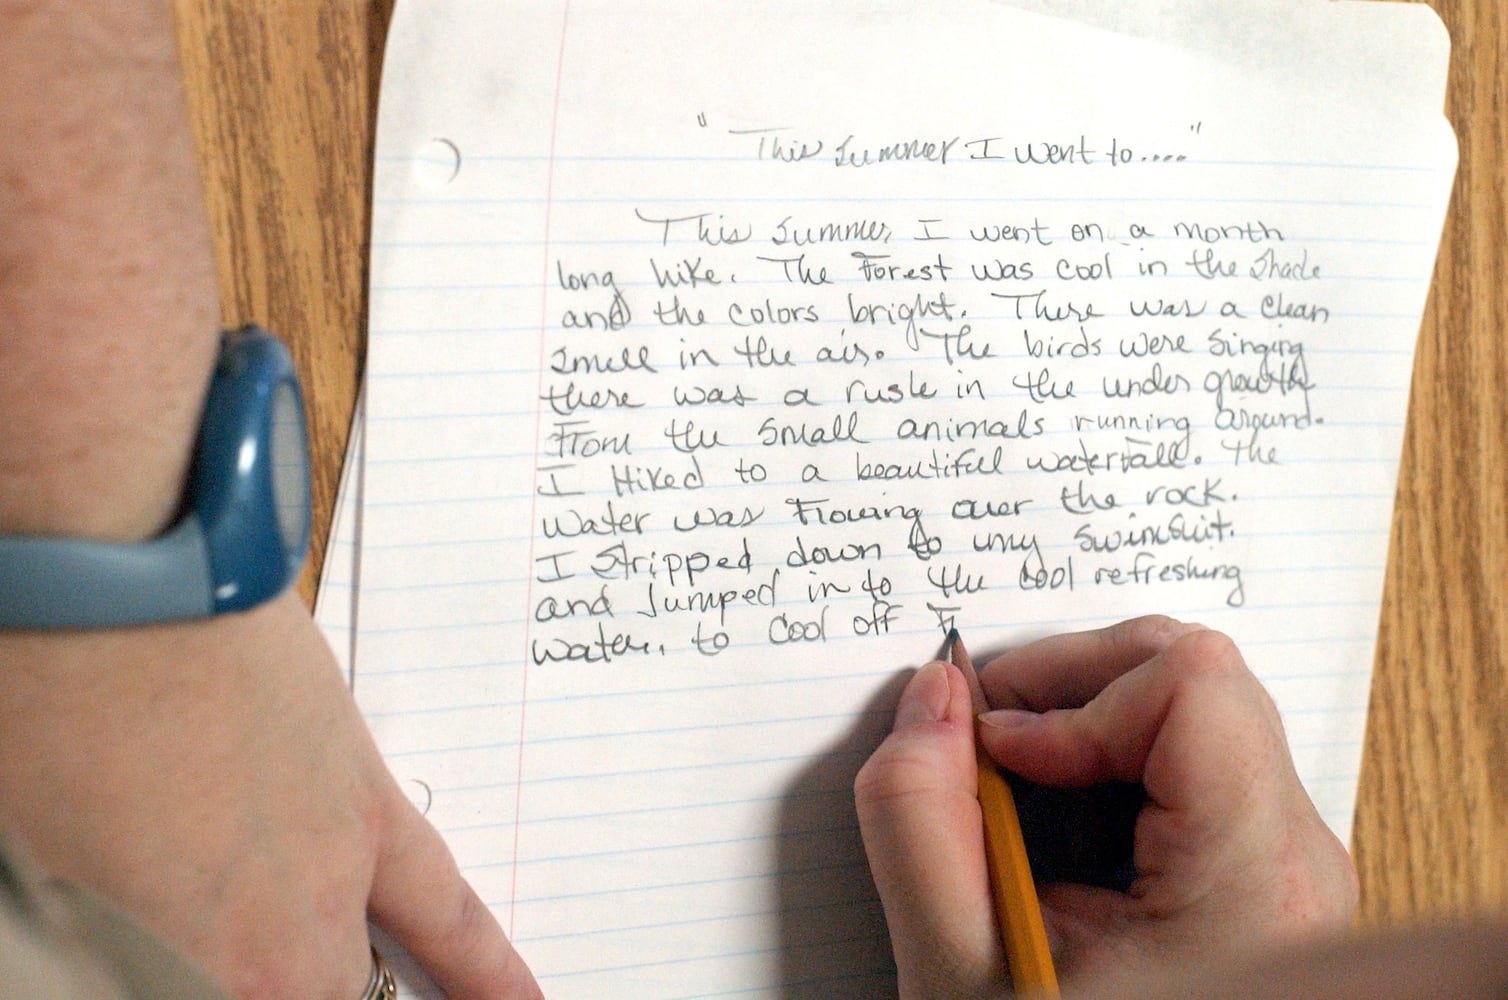 "This Summer I went to...."
This Summer, I went on a month
long hike. The Forest was cool in the Shade
and the colors bright. There was a clean
smell in the air. The birds were Singing
there was a rusle in the under growth
From the Small animals running around.
I Hiked to a beautiful waterfall. The
Water was Flowing over the rock.
I Stripped down to my Swimsuit.
and Jumped in to the cool refreshing
water. to Cool off F